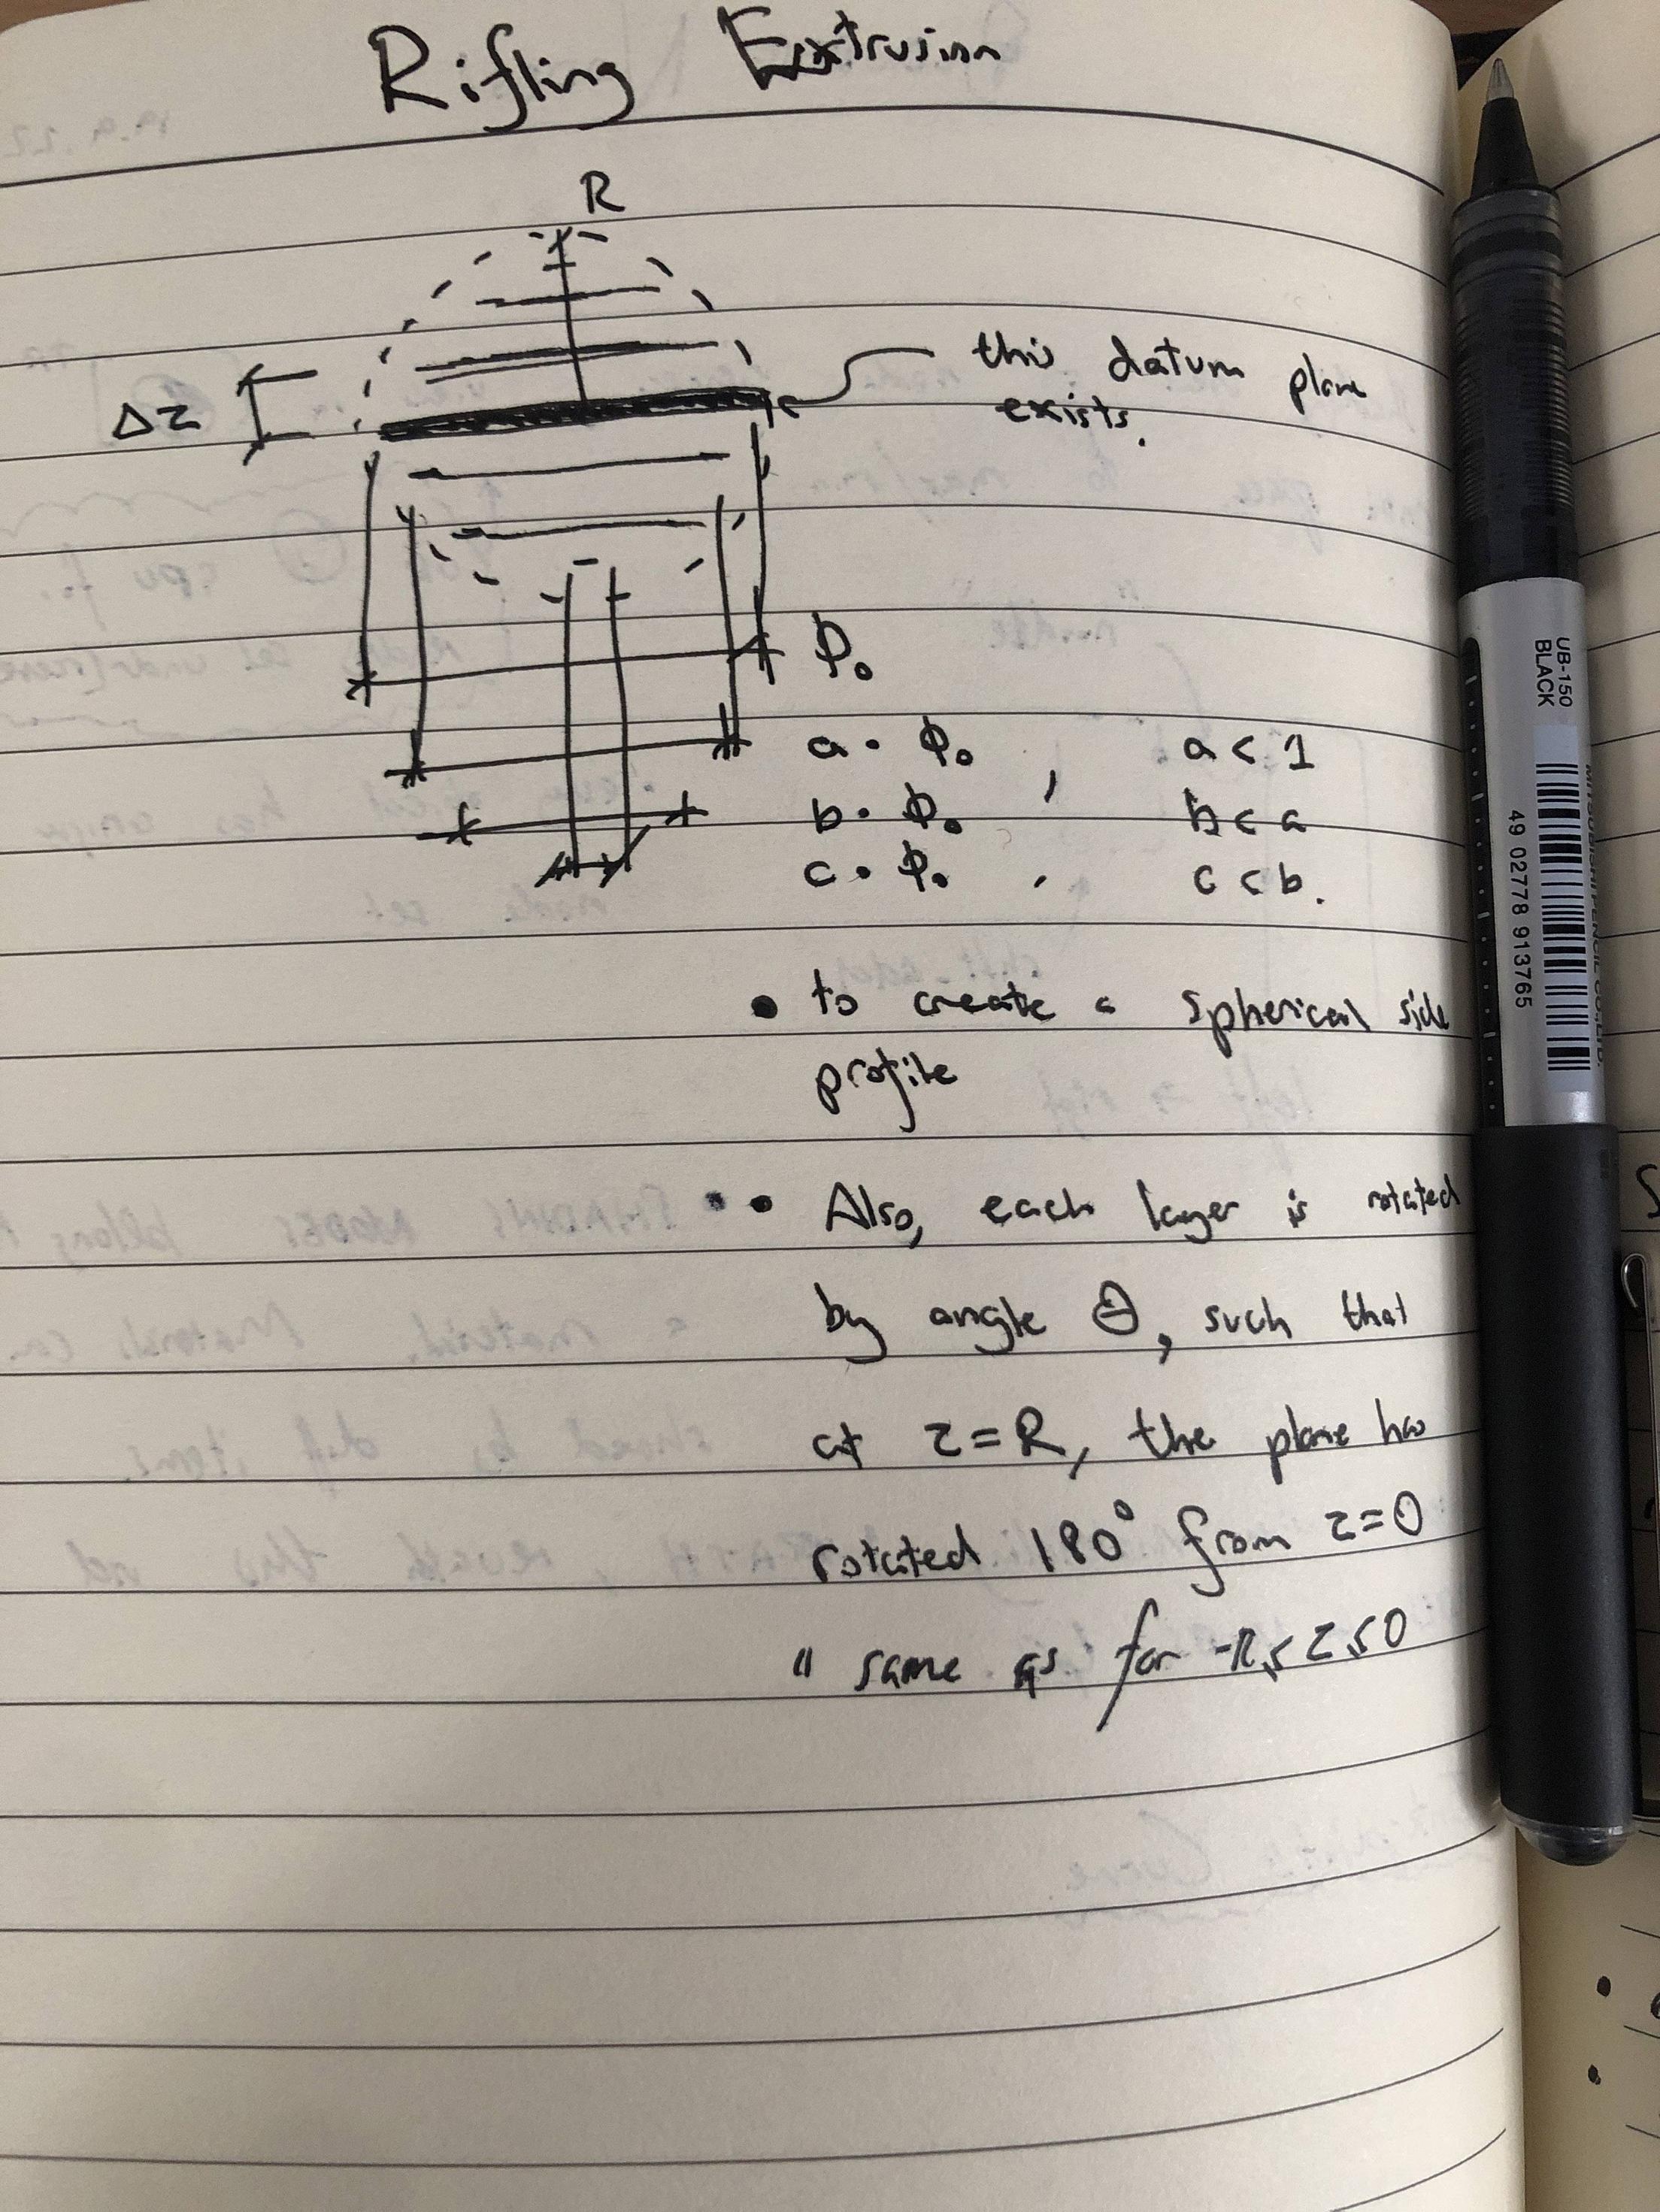 Rifling Extrusion
R
Δz
this datum plane
exists.
Φ₀
a · Φ₀ , a < 1
b · Φ₀ b < a
c · Φ₀ , c < b.
• to create a spherical side
profile
• • Also, each layer is rotated
by angle θ, such that
at z=R, the plane has
rotated 180° from z=0
" same as for -R ≤ z ≤ 0
UB-150
BLACK
49 02778 913765